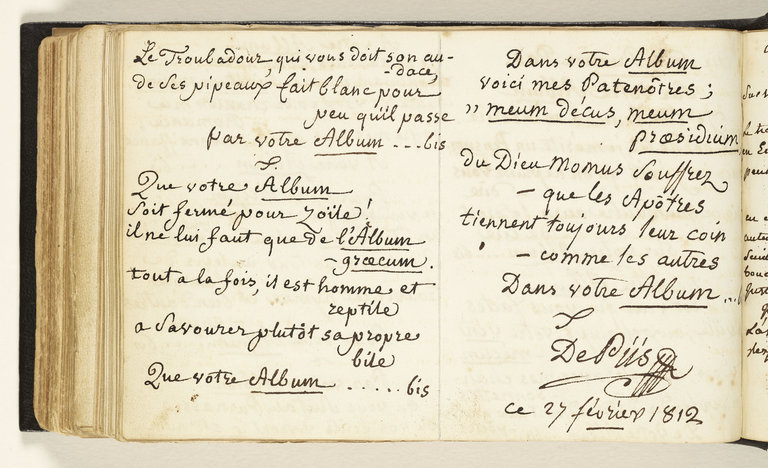 Le Troubadour, qui vous doit son au-
-dace,
de ses pipeaux fait blanc pour
peu qu'il passe
Par votre Album ... bis
Que votre Album
soit fermé pour Zoïle!
il ne lui faut que de l'Album
-grœcum.
tout a la fois, il est homme et
reptile
a savourer plutôt sa propre
bile
Que votre Album ..... bis
Dans votre Album
voici mes Patenôtres;
" meum décus, meum
prœsidium
du Dieu Momus souffrez
- que les Apôtres
tiennent toujours leur coin
- comme les autres
Dans votre Album ...
De Piis
ce 27 février 1812